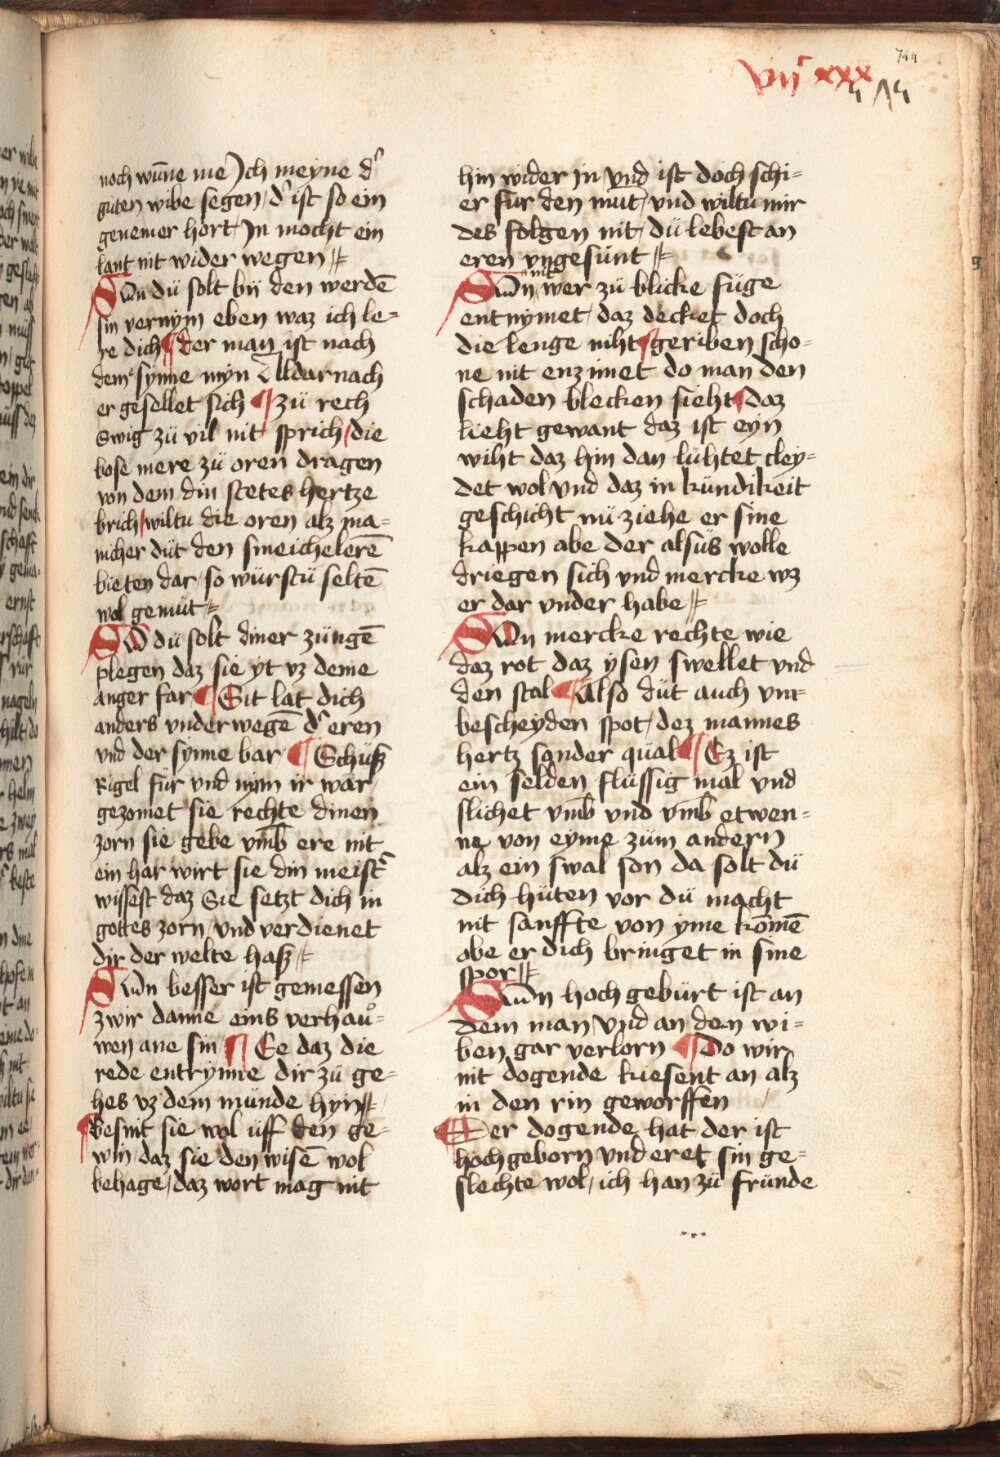 744
vij xxx
515
noch wūne me Ich meyne d'
guten wibe segen / d' ist so ein
genemer hort / In mocht ein
lant nit wider wegen //
Sūn dü solt bij den werdē
sin vernym eben waz ich le=
re dich ¶ der man ist nach
dem synne myn Alldarnach
er gesellet sich ¶ zü rech
swig zü vil nit sprich / die
bose mere zü oren dragen
von dem din stetes hertze
brich / wiltu die oren alz ma=
nicher düt den smeichelerē
bieten dar / so würstü seltē
wol gemüt =
Sūn dü solt diner züngē
plegen daz sie yt vz deme
anger far ¶ Sit lat dich
anders vnderwegē d' eren
vnd der synne bar ¶ Schüß
Rigel für vnd nym ir war
gezomet sie rechte dinen
zorn sie gebe vmb ere nit
ein har wirt sie din meist'
wissest daz Sie setzt dich in
gottes zorn / vnd verdienet
dir der welte haß //
Sūn besser ist gemessen
zwir danne eins verhau=
wen ane sin ¶ Ee daz die
rede entrynne dir zü ge=
hes vz dem münde hyn //
besnit sie wol üff den ge=
win daz sie den wisē wol
behage / daz wort mag nit
hin wider in vnd ist doch schi=
er für den mut / vnd wiltu mir
des folgen nit / dü lebest an
eren vngesünt //
nit
Sūn wer zü blicke füge
entnymet / daz decket doch
die lenge niht ¶ geriben scho=
ne nit enzimet do man den
schaden blecken sieht ¶ daz
lieht gewant daz ist eyn
wiht daz hin dan lühtet cley=
det wol vnd daz in kündikeit
geschicht nü ziehe er sine
kappen abe der alsüs wolle
driegen sich vnd mercke wz
er dar vnder habe //
Sūn mercke rechte wie
daz rot daz ysen swellet vnd
den stal ¶ Also düt auch vnt
bescheyden spot / dez mannes
hertz sonder qüal ¶ Ez ist
ein selden flüssig mal vnd
slichet vmb vnd vmb etwen=
ne von eyme züm andern
alz ein swal son da solt dü
dich hüten vor dü macht
nit sanffte von yme komē
abe er dich bringet in sine
spor //
Sūn hoch gebürt ist an
dem man vnd an den wi=
ben gar verlorn ¶ Do wir
nit dogende kiesent an alz
in den rin geworffen
¶ Der dogende hat der ist
hochgeborn vnd eret sin ge=
slechte wol / ich han zü fründe